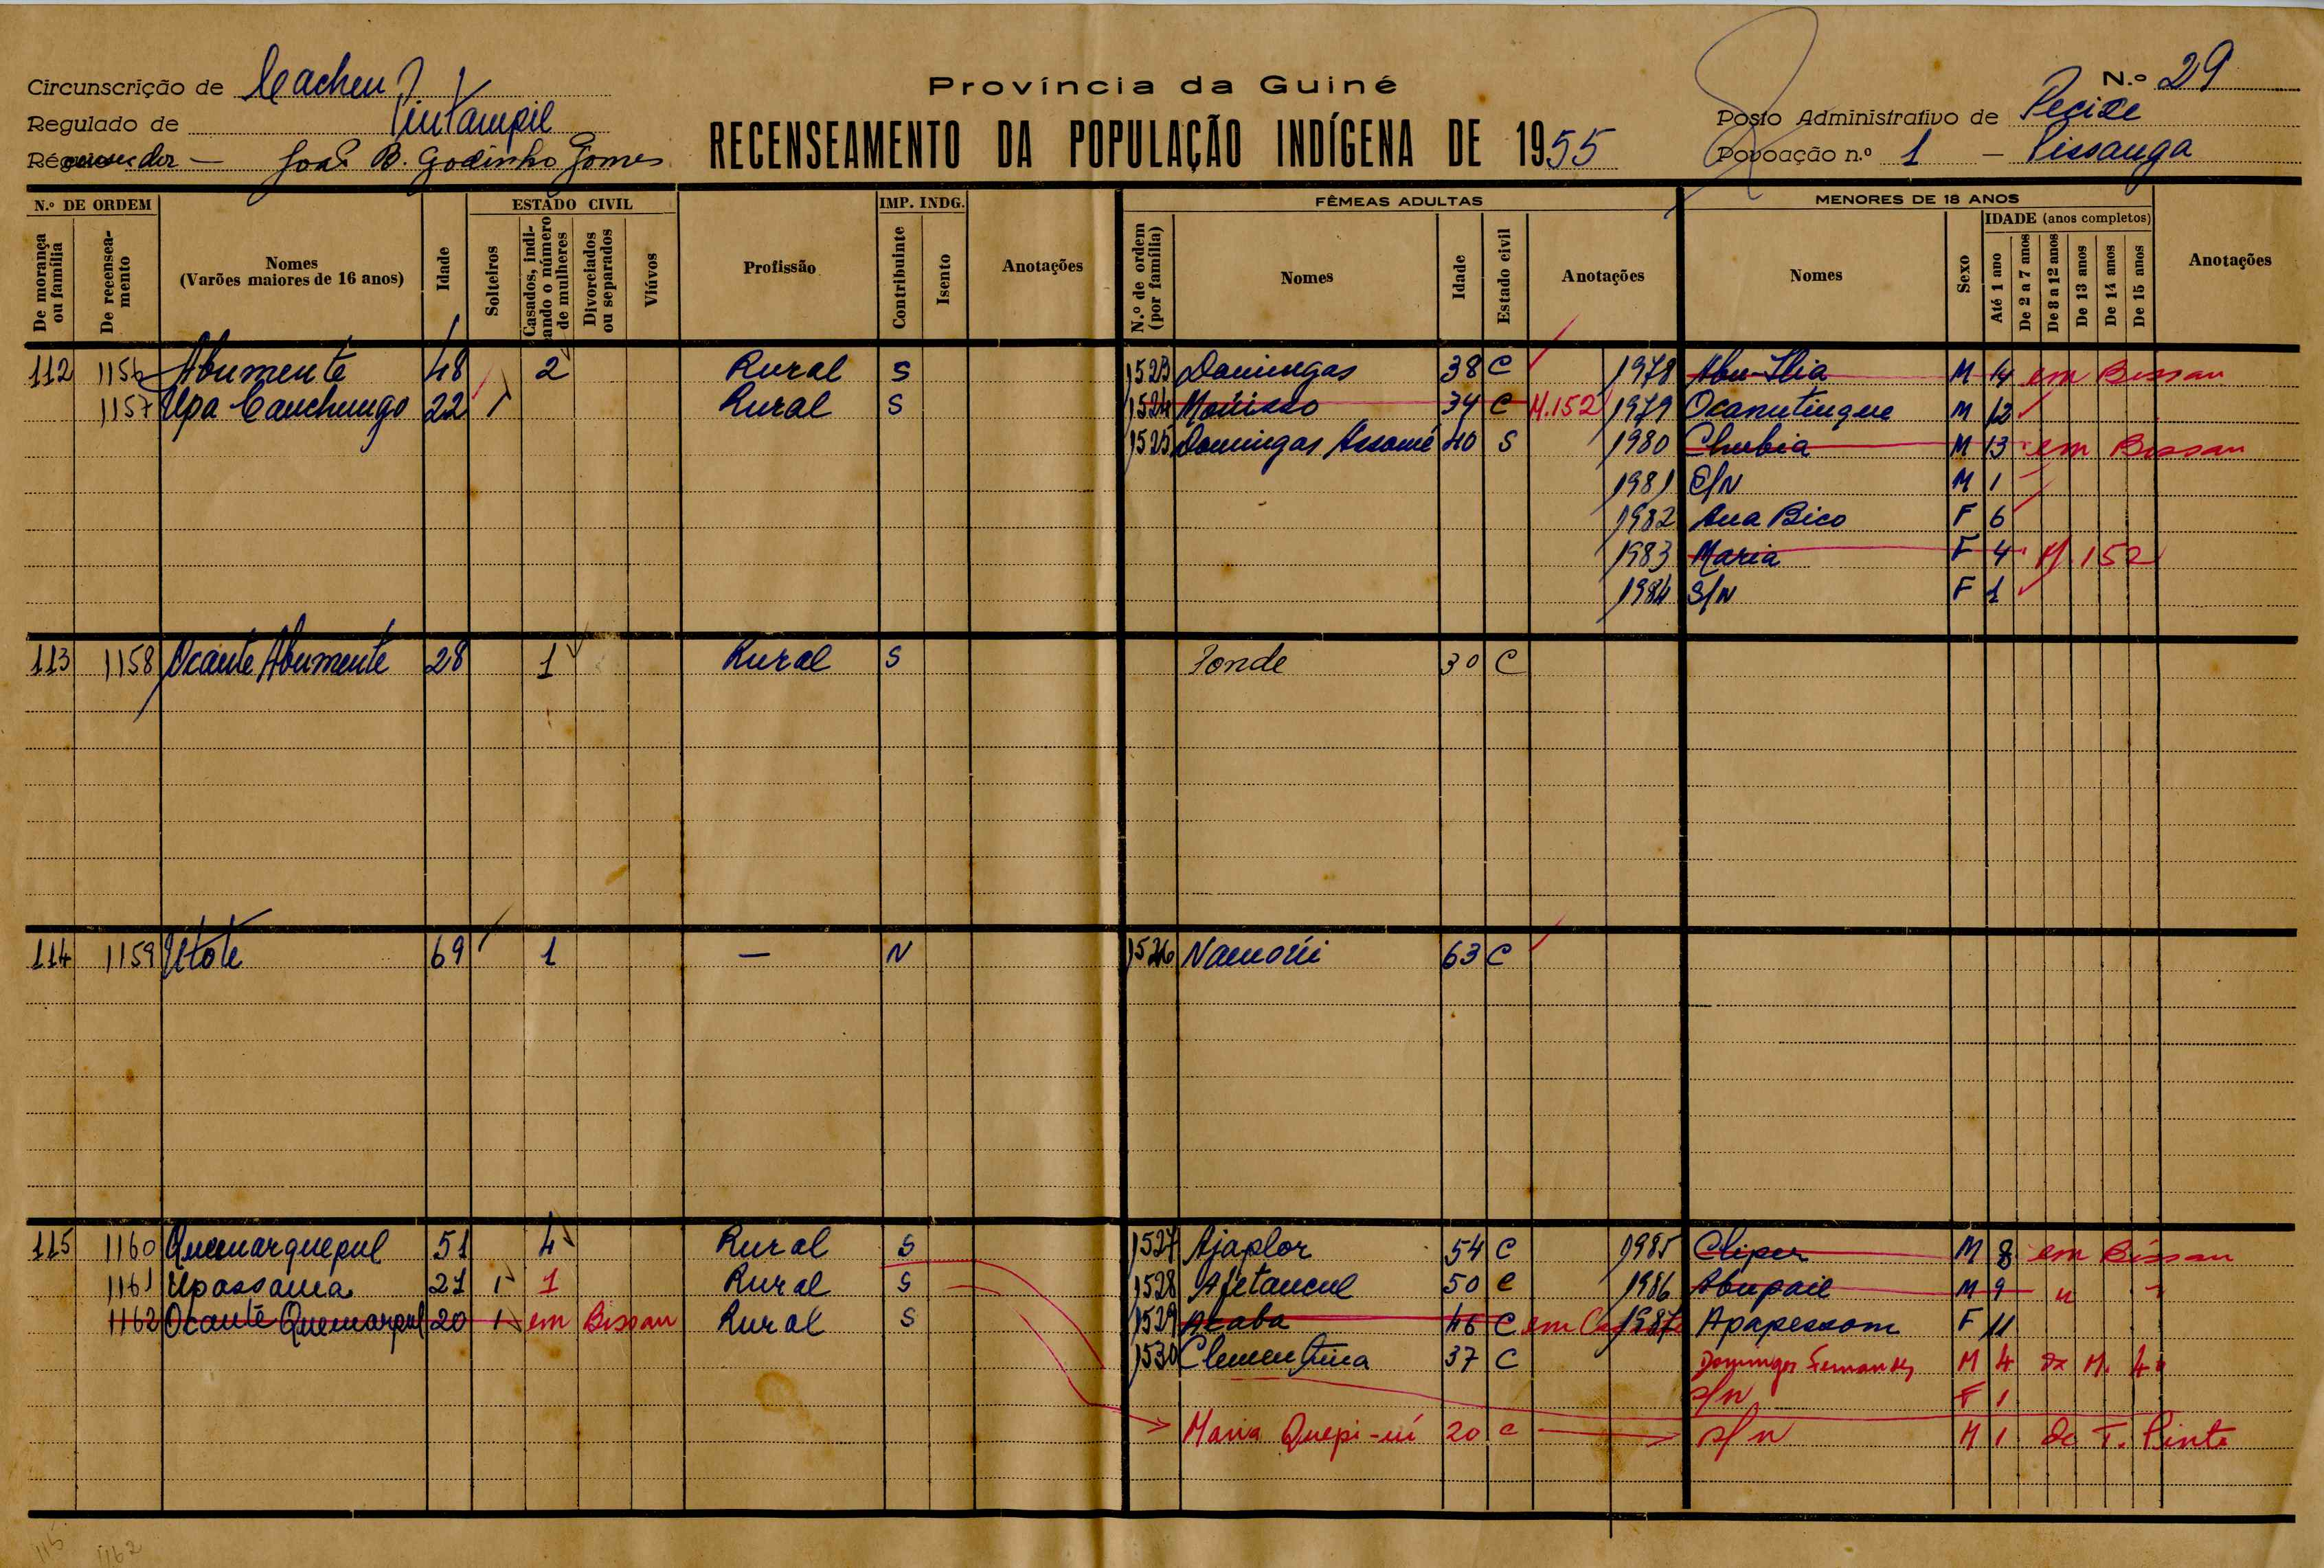 Circunscrição de Cacheu
Regulado de Pintampil
Recenseador — João B. Godinho Gomes
Província da Guiné
RECENSEAMENTO DA POPULAÇÃO INDÍGENA DE 1955
N.º 29
Posto Administrativo de Pecixe
Povoação n.º 1 — Pissanga
N.º DE ORDEM
De morança ou família
De recenseamento
Nomes
(Varões maiores de 16 anos)
Idade
ESTADO CIVIL
Solteiros
Casados, indicando o número de mulheres
Divorciados ou separados
Viúvos
Profissão
IMP. INDG.
Contribuinte
Isento
Anotações
FÊMEAS ADULTAS
N.º de ordem (por família)
Nomes
Idade
Estado civil
Anotações
MENORES DE 18 ANOS
Nomes
Sexo
IDADE (anos completos)
Até 1 ano
De 2 a 7 anos
De 8 a 12 anos
De 13 anos
De 14 anos
De 15 anos
Anotações
112 1156 Abumente 48 2 Rural S 1523 Domingas 38 C 1978 Abu-Ilia M 14 em Bissau
1157 Upa Canchungo 22 1 Rural S 1524 34 C M.152 1979 Ocanutingue M 12
1525 Domingas Assomé 40 S 1980 Chubia M 13 em Bissau
1981 S/N M 1
1982 Ana Bico F 6
1983 Maria F 4 M.152
1984 S/N F 1
113 1158 Ocante Abumente 28 1 Rural S Ponde 30 C
114 1159 Utote 69 1 — N 1526 Namoúi 63 C
115 1160 Quemarquepul 51 4 Rural S 1527 Ajaplor 54 C 1985 Cliper M 8 em Bissau
1161 Upassama 21 1 1 Rural S 1528 Afetancul 50 C 1986 Abupail M 9 " "
1162 Ocante Quemarpul 20 1 em Bissau Rural S 1529 Acaba 46 C em 1987 Apapessom F 11
1530 Clementina 37 C Domingos Fernandes M 4 da M. 4
s/n F 1
Maria Quepi-uí 20 C s/n M 1 de T. Pinto
115 1162